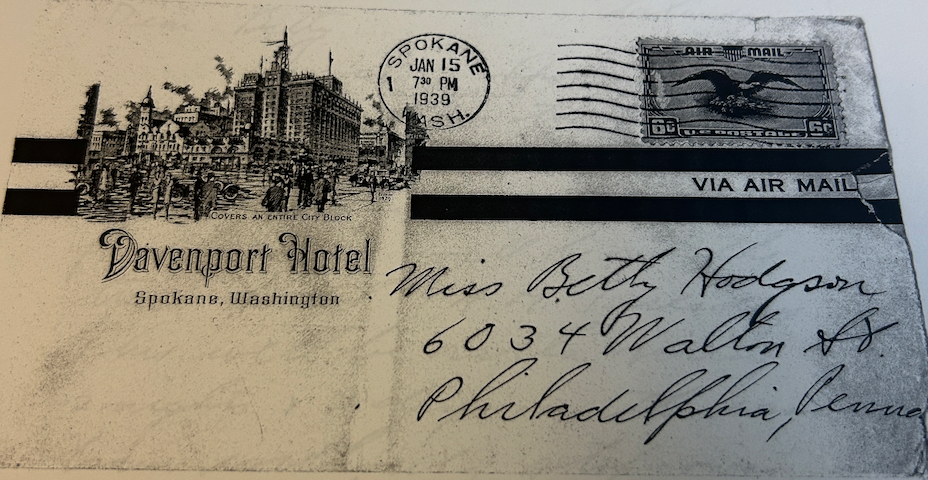 SPOKANE
JAN 15
1 7 30 PM
1939
WASH.
AIR MAIL
6¢ U.S. POSTAGE 6¢
VIA AIR MAIL
COVERS AN ENTIRE CITY BLOCK
Davenport Hotel
Spokane, Washington
Miss Betty Hodgson
6034 Walton St.
Philadelphia, Penna